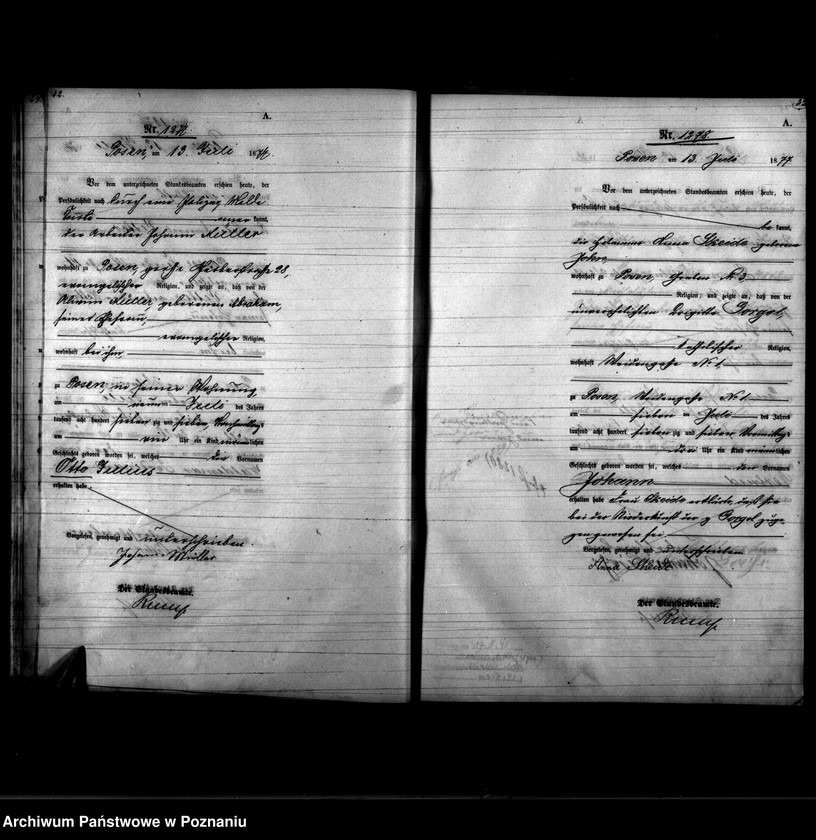 A.
Nr. 127
Posen, am 13. Juli 187
Vor dem unterzeichneten Standesbeamten erschien heute, der
Persönlichkeit nach durch eine
kannt,
der Arbeiter Johann Müller
wohnhaft zu Posen, 28,
evangelischer Religion, und zeigte an, daß von der
Müller, geborenen
seiner Ehefrau,
evangelischer Religion,
wohnhaft bei ihm
zu Posen, in seiner Wohnung
am neunten Juli des Jahres
tausend acht hundert siebenzig und sieben, Nachmittags
um ein Uhr ein Kind männlichen
Geschlechts geboren worden sei, welches den Vornamen
Otto Julius
erhalten habe.
Vorgelesen, genehmigt und unterschrieben.
Johann Müller
Der Standesbeamte.
A.
Nr. 1298.
Posen am 13. Juli 1877.
Vor dem unterzeichneten Standesbeamten erschien heute, der
Persönlichkeit nach
be kannt,
die Hebamme Anna Skeide geborene
wohnhaft zu Posen, Graben N. 3
Religion, und zeigte an, daß von der
unverehelichten Brigitta Gorgol,
katholischer Religion,
wohnhaft Weidengasse No. 1.
zu Posen, Weidengasse No. 1.
am sieben ten Juli des Jahres
tausend acht hundert siebenzig und sieben Vormittags
um drei Uhr ein Kind männlichen
Geschlechts geboren worden sei, welches den Vornamen
Johann
erhalten habe. Frau Skeide erklärte, daß sie
bei der Niederkunft der p. Gorgol zuge-
gen gewesen sei.
Vorgelesen, genehmigt und unterschrieben
Anna Skeide
Der Standesbeamte.
Archiwum Państwowe w Poznaniu